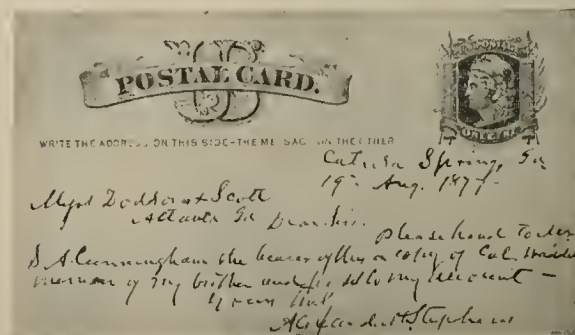 POSTAL CARD.
WRITE THE ADDRESS ON THIS SIDE - THE MESSAGE ON THE OTHER
ONE CENT
Catoosa Spring, Ga
19th Aug. 1877 -
Dodson & Scott
Atlanta Ga Dear Sir.
Please hand to
S. A. Cunningham the bearer of this a copy of Col.
memoir of my brother and my account -
Yours truly
Alexander H Stephens